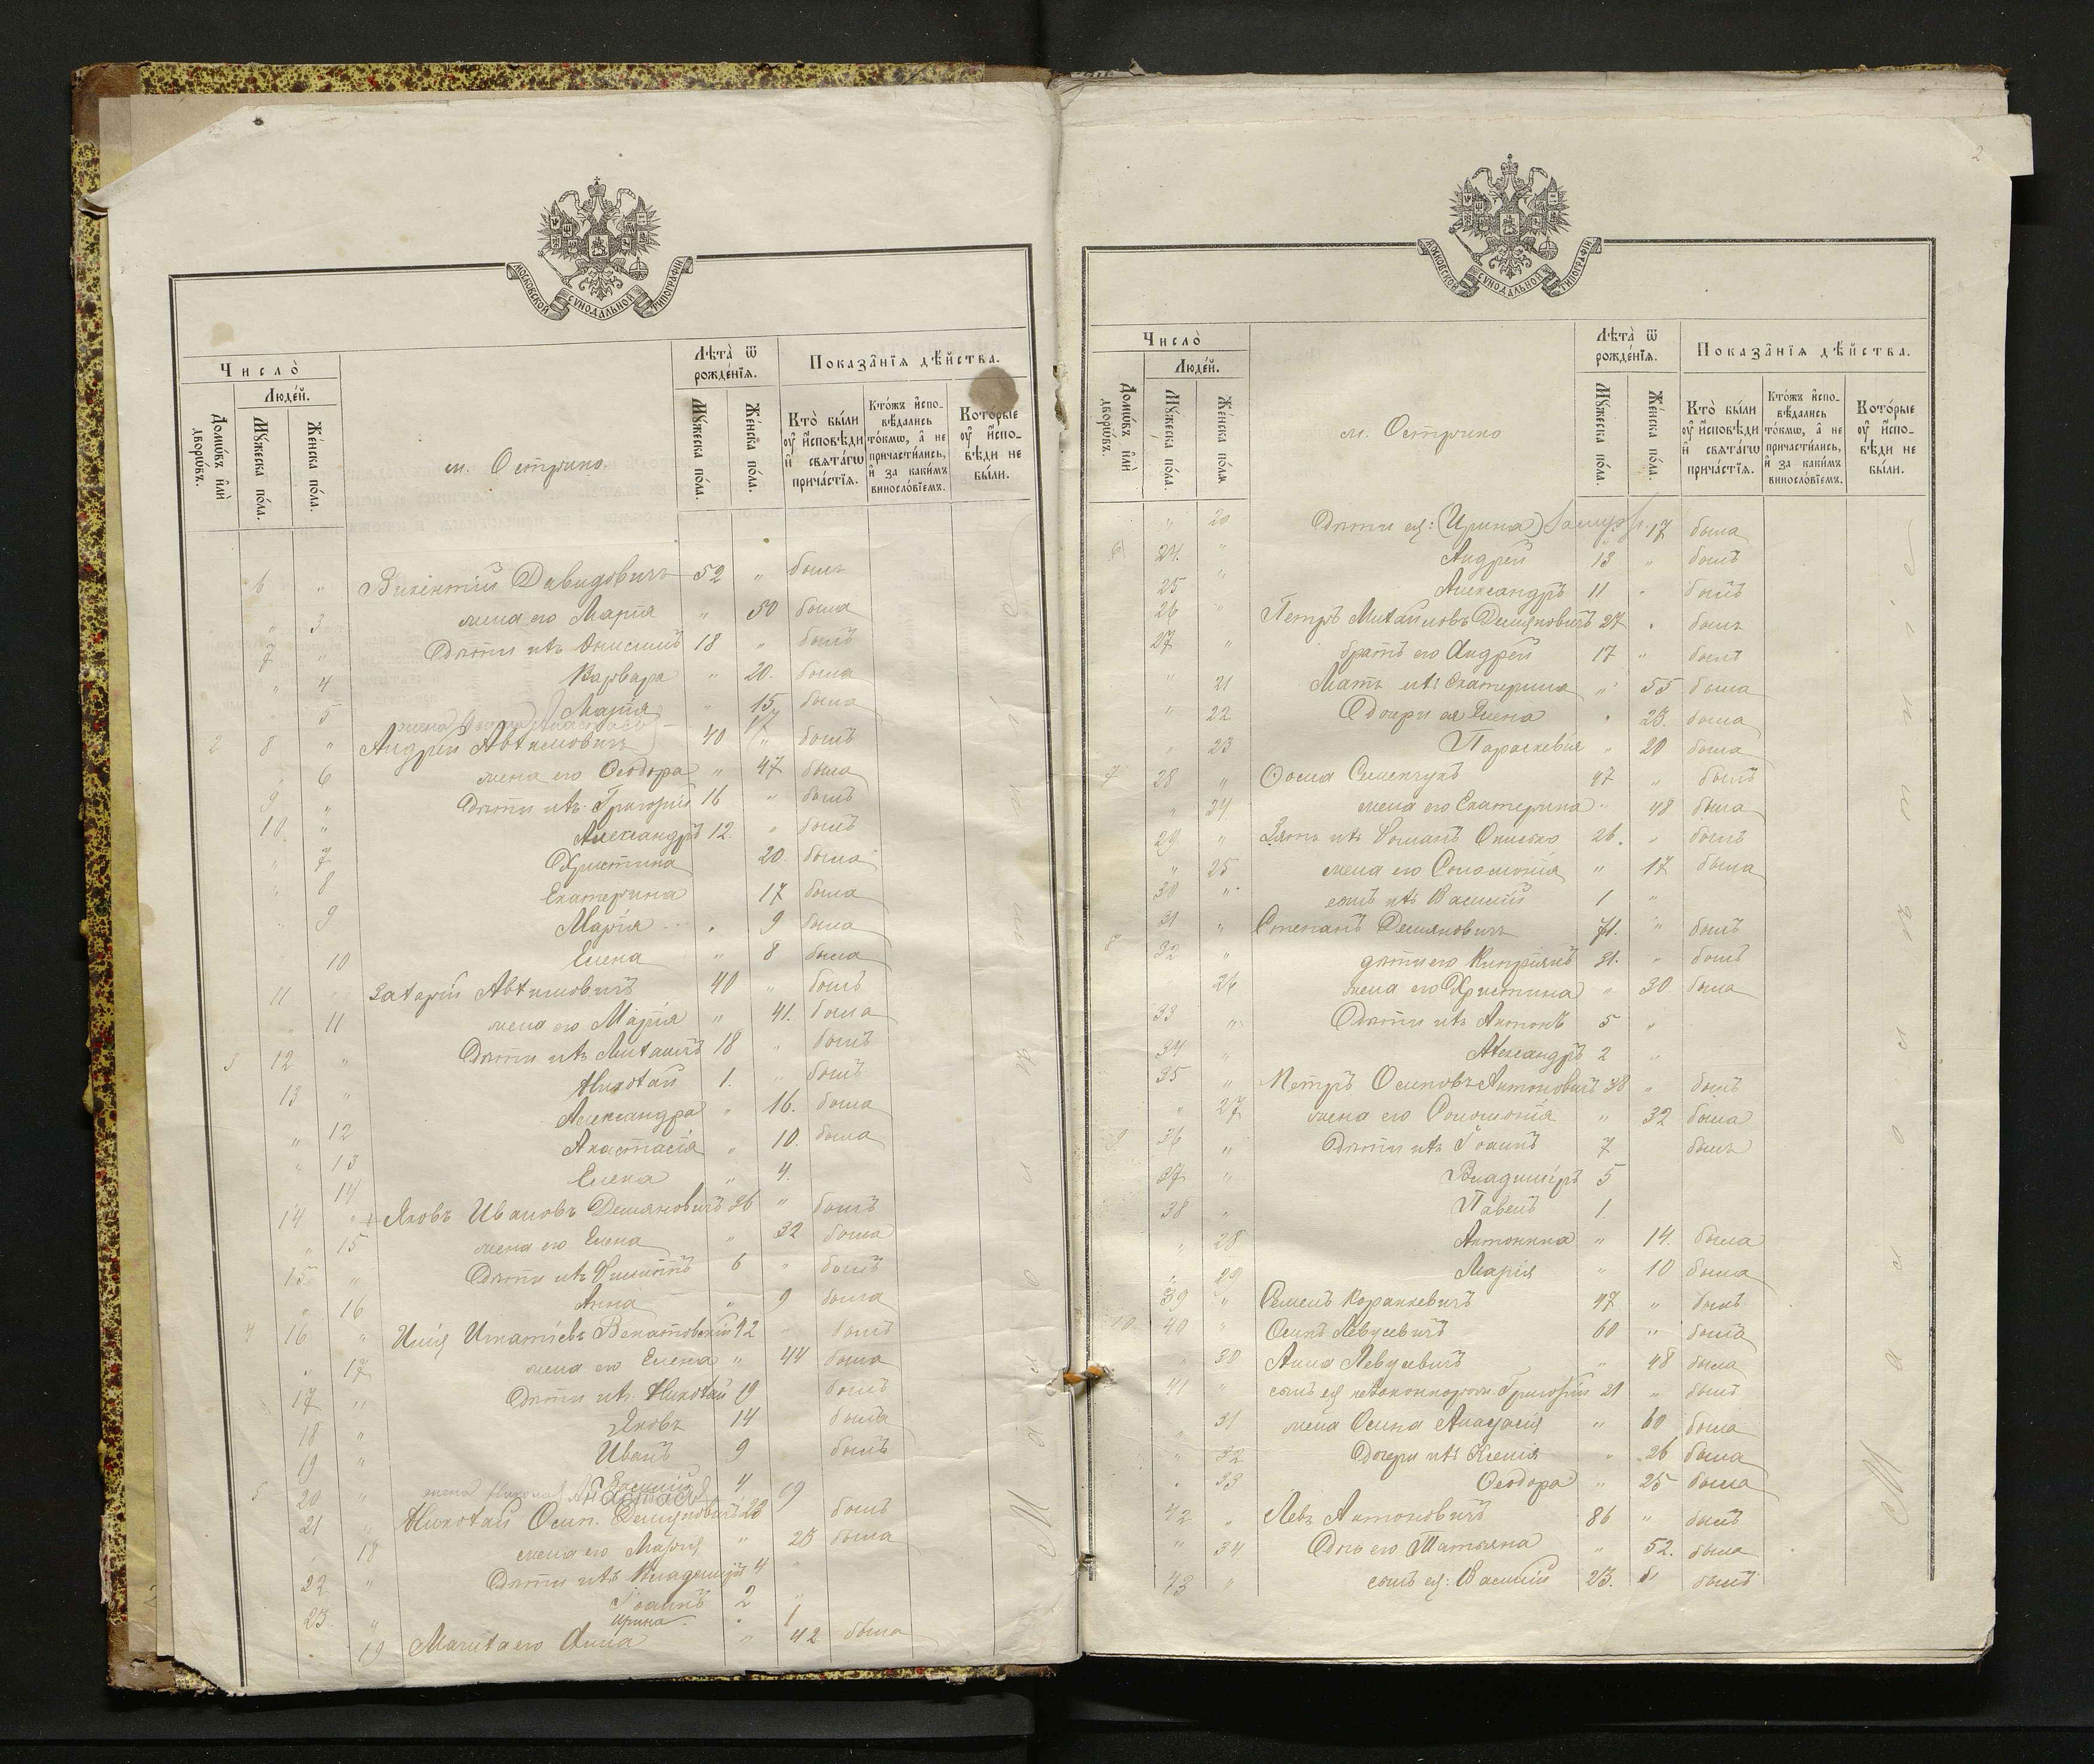 МОСКОВСКОЙ СѴНОДАЛЬНОЙ ТИПОГРАФІИ
Число̀
Людéй.
Домѡ́въ и҆лѝ дворѡ́въ.
Мꙋ́жеска по́ла.
Же́нска по́ла.
м. Острино.
Лѣта̀ ѿ рожде́нїѧ.
Мꙋ́жеска по́ла.
Же́нска по́ла.
Показа̑нїѧ дѣ́йства.
Кто̀ бы́ли ᲂу҆ и҆сповѣди и҆ свѧта́гѡ прича́стїѧ.
Кто́жъ и҆сповѣдались то́кмѡ, а҆ не причасти́лись, и҆ за каки́мъ винослóвїемъ.
Кото́рые ᲂу҆ и҆сповѣди не бы́ли.
6 " Викентій Давидовичъ 52 " былъ
" 3 жена его Марія " 50 была
7 " Дѣти ихъ Онисимъ 18 " былъ
" 4 Варвара " 20. была
5 Марія " 15 была
2 8 " Андрей Автимовичъ 40 " былъ
" 6 жена его Ѳеодора " 47 была
9 " Дѣти ихъ. Григорій 16 " былъ
10 " Александръ 12. " былъ
" 7 Христина 20. была
" 8 Екатерина 17 была
" 9 Марія " 9 была
10 Елена " 8 была
11 " Захарій Автимовичъ 40 " былъ
" 11 жена его Марія " 41. была
3 12 " Дѣти ихъ Михаилъ 18 " былъ
13 " Николай 1. " былъ
" 12 Александра " 16. была
" 13 Анастасія " 10. была
14 Елена " 4.
14 " Яковъ Ивановъ Демяновичъ 36 " былъ
" 15 жена его Елена " 32 была
15 " Дѣти ихъ Филиппъ 6 " былъ
" 16 Анна " 9 была
4 16 " Илія Игнатіевъ 42 " былъ
" 17 жена его Елена " 44 была
17 " Дѣти ихъ. Николай 19 былъ
18 " Яковъ 14 былъ
19 " Иванъ 9 былъ
5 20 " Василій 4
жена Николая Анастасія 19
21 " Николай Осип. Демяновичъ 23 былъ
" 18 жена его Марія " 23 была
22 " Дѣти ихъ Владиміръ 4 "
23 " Іоаннъ 2
Ирина " 1
19 Мачиха его Анна " 42 была
2
МОСКОВСКОЙ СѴНОДАЛЬНОЙ ТИПОГРАФІИ
Число̀
Людéй.
Домѡ́въ и҆лѝ дворѡ́въ.
Мꙋ́жеска по́ла.
Же́нска по́ла
м. Острино
Лѣта̀ ѿ рожде́нїѧ.
Мꙋ́жеска по́ла.
Же́нска по́ла.
Показа̑нїѧ дѣ́йства.
Кто̀ бы́ли ᲂу҆ и҆сповѣди и҆ свѧта́гѡ прича́стїѧ.
Кто́жъ и҆сповѣдались то́кмѡ, а҆ не причасти́лись, и҆ за каки́мъ винослóвїемъ.
Кото́рые ᲂу҆ и҆сповѣди не бы́ли.
" 20 Дѣти ея: (Ирина) 17 была
6 24. " Андрей 13 " былъ
25 " Александръ 11 " былъ
26 " Петръ Михайловъ Демяновичъ 27 " былъ
27 " братъ его Андрей 17 " былъ
" 21 Мать ихъ Екатерина " 55 была
" 22 Дочери ея Елена " 23. была
" 23 Параскевія " 20 была
7 28 " Ѳома Семенчукъ 47 " былъ
" 24. жена его Екатерина " 48 была
29 " Зять ихъ Романъ 26. " былъ
" 25 жена его Соломонія " 17 была
30 " сынъ ихъ Василій 1 "
31 " Степанъ Демяновичъ 71. " былъ
8 32 " дѣти его Кипріянъ 31. " былъ
26 жена его Христина " 30 была
33 " Дѣти ихъ Антонъ 5 "
34 " Александръ 2 "
35 " Петръ Осиповъ Антоновичъ 38 " былъ
" 27 жена его Соломонія " 32 была
9 36 " Дѣти ихъ Іоаннъ 7 былъ
37 " Владиміръ 5
38 " Павелъ 1.
" 28 Антонина " 14. была
" 29 Марія " 10 была
39 " Семенъ Каранкевичъ 47 " былъ
10 40 " Осипъ Левусевичъ 60 " былъ
" 30 Анна Левусевичъ " 48 была
41 " сынъ ея незаконнорож. Григорій 21 " былъ
" 31 жена Осипа " 60 была
" 32 Дочери ихъ Ксенія " 26 была
" 33 Ѳеодора " 25 была
42 " Левъ Антоновичъ 86 " былъ
" 34 Дочь его Татьяна " 52. была
43 " сынъ ея: Василій 23. " былъ